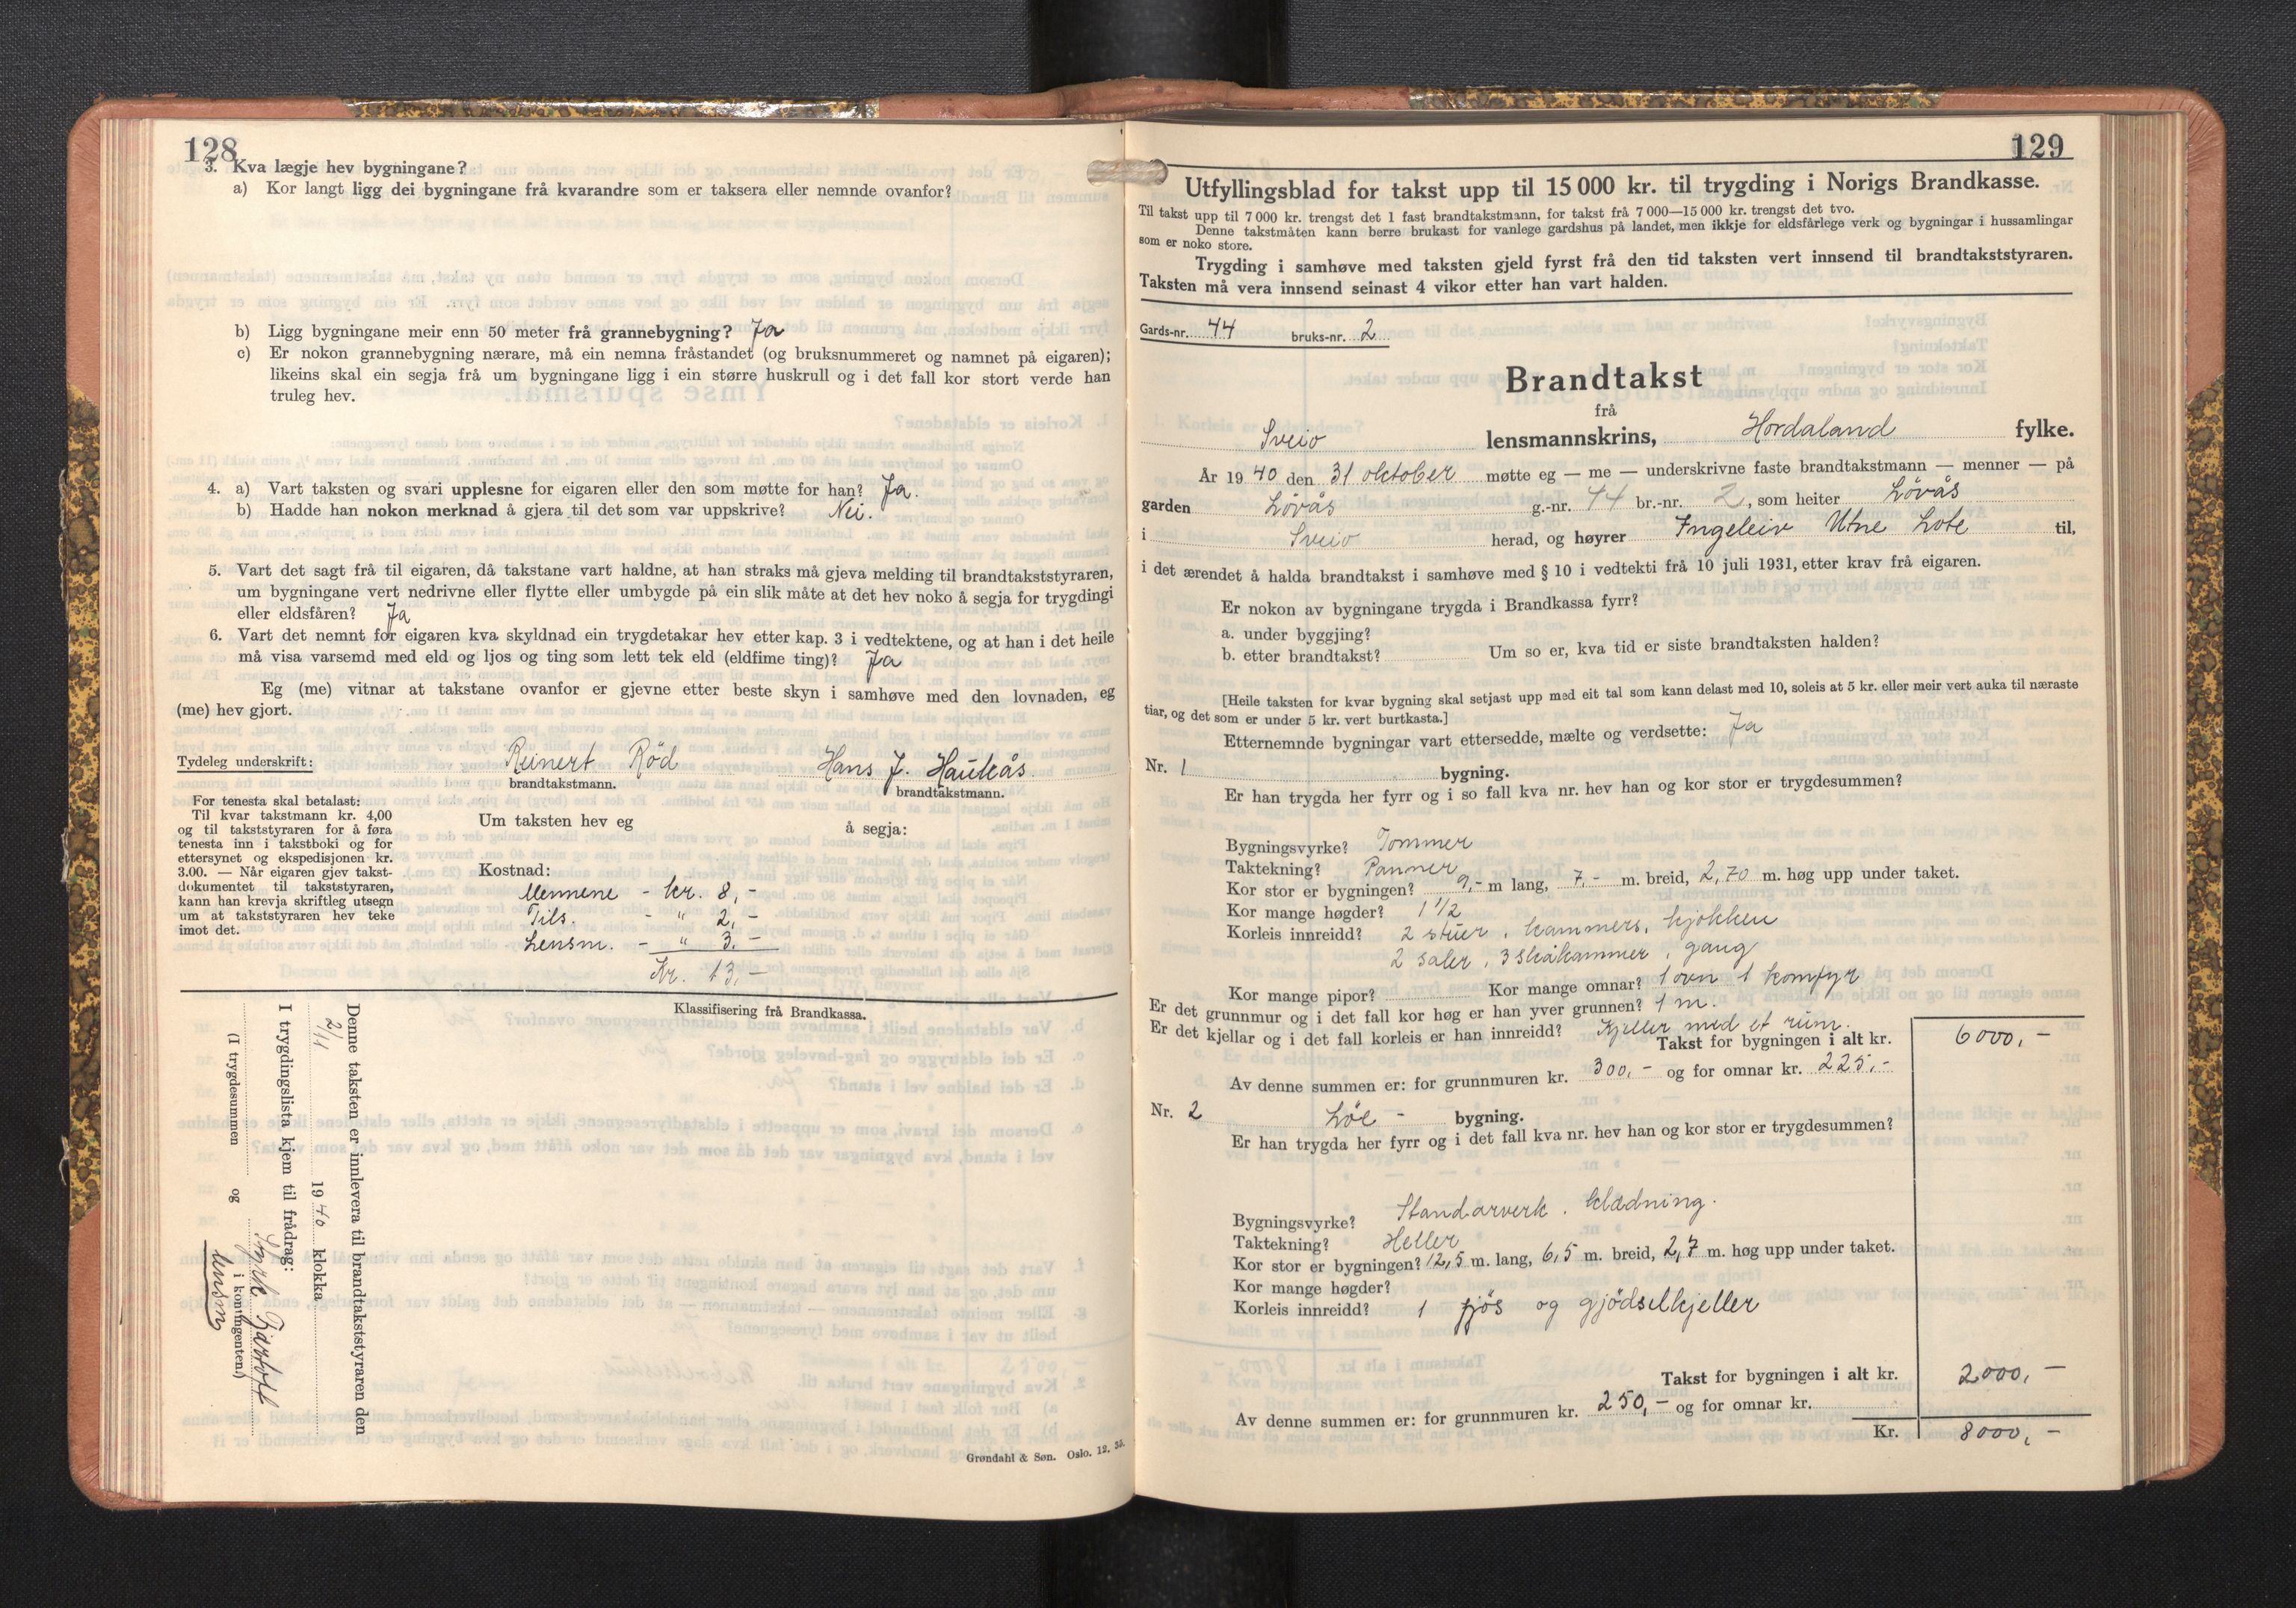 128
3. Kva lægje hev bygningane?
a) Kor langt ligg dei bygningane frå kvarandre som er taksera eller nemnde ovanfor?
b) Ligg bygningane meir enn 50 meter frå grannebygning? Ja
c) Er nokon grannebygning nærare, må ein nemna fråstandet (og bruksnummeret og namnet på eigaren);
likeins skal ein segja frå um bygningane ligg i ein større huskrull og i det fall kor stort verde han
truleg hev.
4. a) Vart taksten og svari upplesne for eigaren eller den som møtte for han? Ja.
b) Hadde han nokon merknad å gjera til det som var uppskrive? Nei.
5. Vart det sagt frå til eigaren, då takstane vart haldne, at han straks må gjeva melding til brandtakststyraren,
um bygningane vert nedrivne eller flytte eller umbygde på ein slik måte at det hev noko å segja for trygdingi
eller eldsfåren? Ja
6. Vart det nemnt for eigaren kva skyldnad ein trygdetakar hev etter kap. 3 i vedtektene, og at han i det heile
må visa varsemd med eld og ljos og ting som lett tek eld (eldfime ting)? Ja
Eg (me) vitnar at takstane ovanfor er gjevne etter beste skyn i samhøve med den lovnaden, eg
(me) hev gjort.
Tydeleg underskrift: Reinert Röd Hans J. Haukås
brandtakstmann. brandtakstmann.
For tenesta skal betalast:
Til kvar takstmann kr. 4,00
og til takststyraren for å føra
tenesta inn i takstboki og for
ettersynet og ekspedisjonen kr.
3.00. — Når eigaren gjev takst-
dokumentet til takststyraren,
kann han krevja skriftleg utsegn
um at takststyraren hev teke
imot det.
Um taksten hev eg å segja:
Kostnad:
Mennene - kr. 8,-
Tils. - " 2,-
Lensm. - " 3.-
Kr. 13,-
Klassifisering frå Brandkassa.
Denne taksten er innlevera til brandtakststyraren den
2/11 1940 klokka
I trygdingslista kjem til frådrag:
(I trygdesummen og i kontingenten)
lensm
Grøndahl & Søn. Oslo. 12. 35.
129
Utfyllingsblad for takst upp til 15 000 kr. til trygding i Norigs Brandkasse.
Til takst upp til 7 000 kr. trengst det 1 fast brandtakstmann, for takst frå 7 000—15 000 kr. trengst det tvo.
Denne takstmåten kann berre brukast for vanlege gardshus på landet, men ikkje for eldsfårlege verk og bygningar i hussamlingar
som er noko store.
Trygding i samhøve med taksten gjeld fyrst frå den tid taksten vert innsend til brandtakststyraren.
Taksten må vera innsend seinast 4 vikor etter han vart halden.
Gards-nr. 44 bruks-nr. 2
Brandtakst
frå
Sveio lensmannskrins, Hordaland fylke.
År 1940 den 31 oktober møtte eg — me — underskrivne faste brandtakstmann — menner — på
garden Lövås g.-nr. 44 br.-nr. 2, som heiter Lövås
i Sveio herad, og høyrer Ingeleiv Utne Lote til,
i det ærendet å halda brandtakst i samhøve med § 10 i vedtekti frå 10 juli 1931, etter krav frå eigaren.
Er nokon av bygningane trygda i Brandkassa fyrr?
a. under byggjing?
b. etter brandtakst? Um so er, kva tid er siste brandtaksten halden?
[Heile taksten for kvar bygning skal setjast upp med eit tal som kann delast med 10, soleis at 5 kr. eller meir vert auka til næraste
tiar, og det som er under 5 kr. vert burtkasta.]
Etternemnde bygningar vart ettersedde, mælte og verdsette: Ja
Nr. 1 bygning.
Er han trygda her fyrr og i so fall kva nr. hev han og kor stor er trygdesummen?
Bygningsvyrke? Tømmer
Taktekning? Panner
Kor stor er bygningen? 9,- m lang, 7,- m. breid, 2,70 m. høg upp under taket.
Kor mange høgder? 1 1/2
Korleis innreidd? 2 stuer, kammers, kjökken
2 saler, 3 skåkammer, gang
Kor mange pipor? Kor mange omnar? 1 ovn 1 komfyr
Er det grunnmur og i det fall kor høg er han yver grunnen? 1 m.
Er det kjellar og i det fall korleis er han innreidd? Kjeller med et rum.
Takst for bygningen i alt kr. 6000,-
Av denne summen er: for grunnmuren kr. 300,- og for omnar kr. 225,-
Nr. 2 Löe - bygning.
Er han trygda her fyrr og i det fall kva nr. hev han og kor stor er trygdesummen?
Bygningsvyrke? Standarverk. klædning.
Taktekning? Heller
Kor stor er bygningen? 12,5 m. lang, 6,5 m. breid, 2,7 m. høg upp under taket.
Kor mange høgder?
Korleis innreidd? 1 fjös og gjödselkjeller
Takst for bygningen i alt kr. 2000,-
Av denne summen er: for grunnmuren kr. 250,- og for omnar kr.
Kr. 8000,-